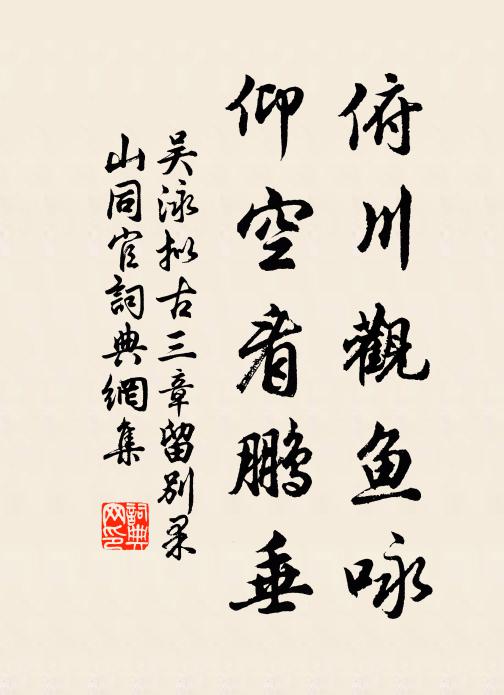 俯川觀鱼咏
仰空看鵬垂
吴泳拟古三章留别果
山同官詞典網集
詞典
网印